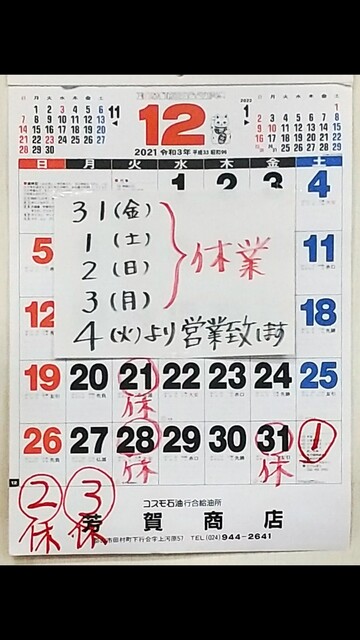 11
日 月 火 水 木 金 土
1 2 3 4 5 6
7 8 9 10 11 12 13
14 15 16 17 18 19 20
21 22 23 24 25 26 27
28 29 30
12
2021 令和3年 平成33 昭和96
2022
1
日 月 火 水 木 金 土
日 月 火 水 木 金 土
1 2 3 4
31(金)
1(土)
2(日)
3(月)
休業
4(火)より営業致します
5 11
12 18
19 20 21 22 23 24 25
休
26 27 28 29 30 31 1
休 休
2 3
休 休
12
コスモ石油行合給油所
芳賀商店
市田村町下行合字上河原57 TEL (024) 944-2641